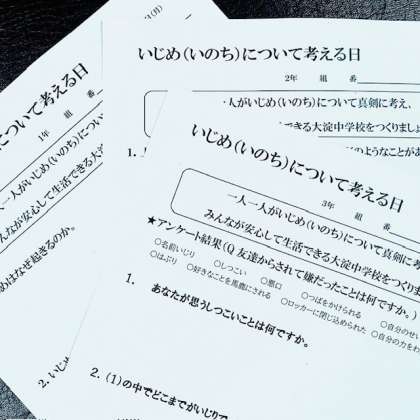 (月)
について考える日
1年 組 番
人一人がいじめ(いのち)につい
んなが安心して生活できる大
めはなぜ起きるのか。
2. いじめ
いじめ(いのち)について考える日
2年 組 番
人がいじめ(いのち)について真剣に考え、
できる大淀中学校をつくりましょ
1.
のようなことがあ
いじめ(いのち)について考える日
3年 組 番
一人一人がいじめ(いのち)について真剣に考
みんなが安心して生活できる大淀中学校をつくりま
★アンケート結果(Q 友達からされて嫌だったことは何ですか。)
○名前いじり ○しつこい ○悪口 ○つばをかけられる ○自分のせい
○はぶり ○好きなことを馬鹿にされる ○ロッカーに閉じ込められた ○自分の力をわ
1. あなたが思うしつこいことは何ですか。
2. (1)の中でどこまでがいじりで